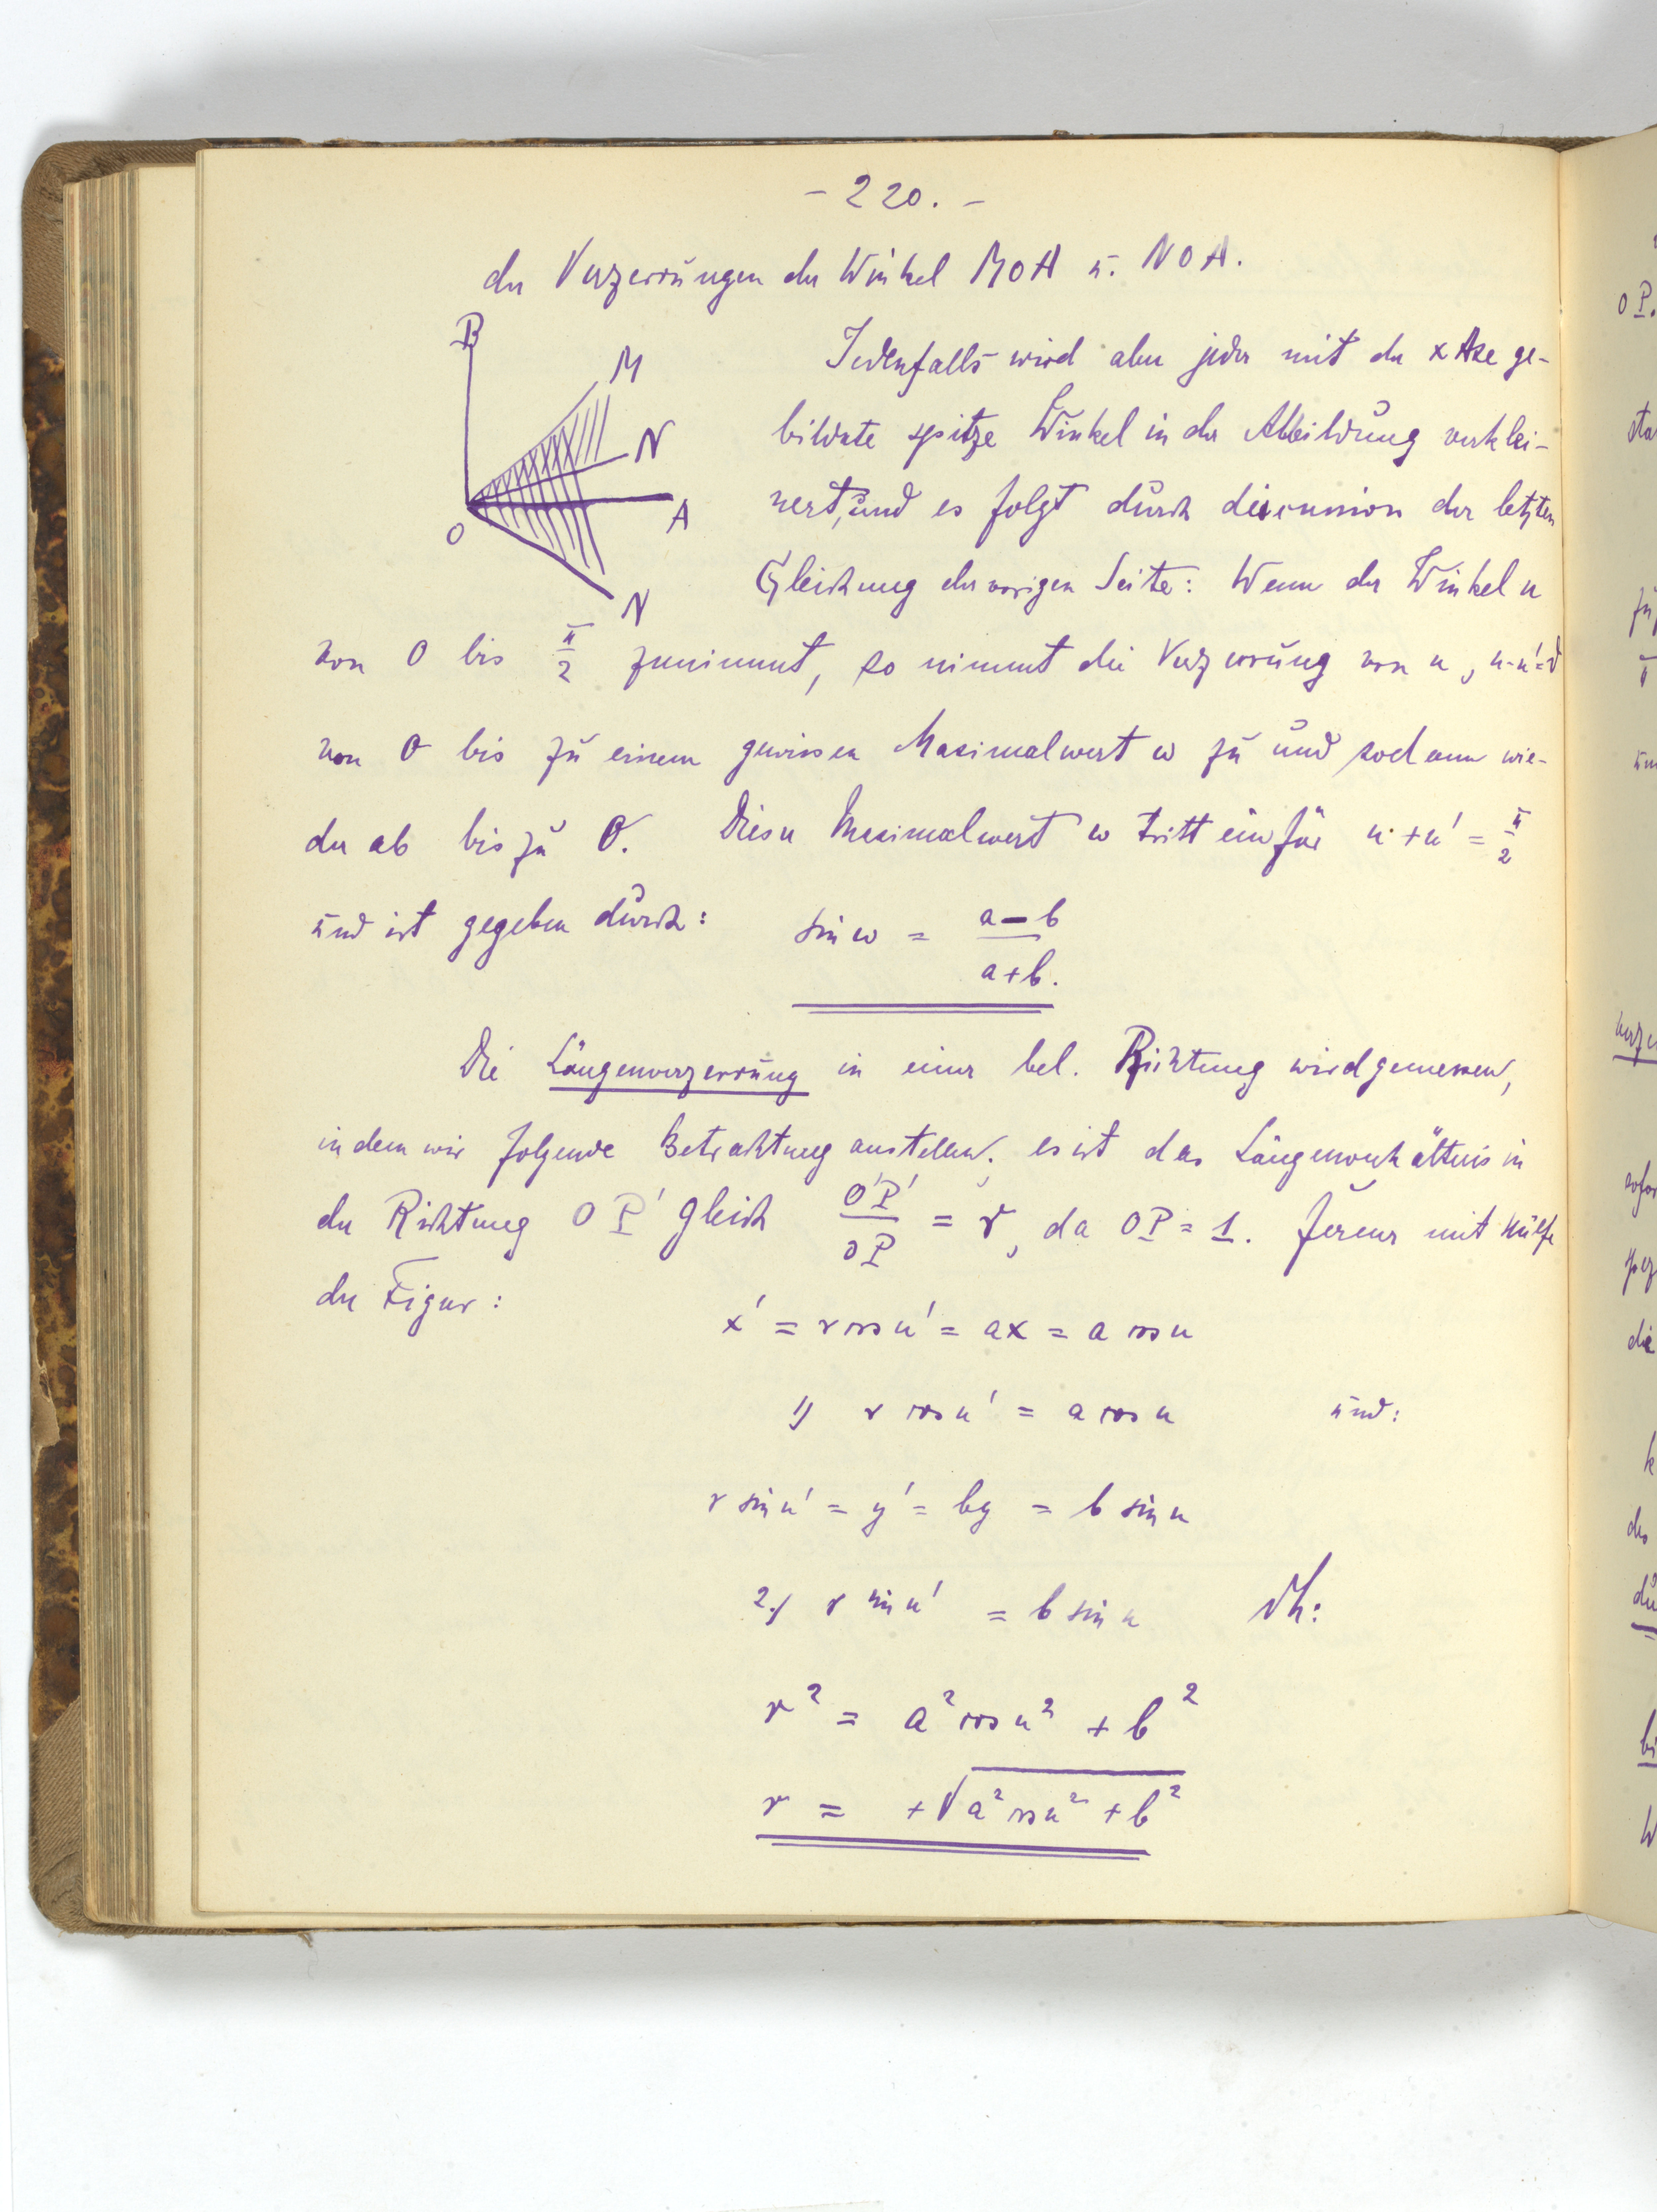 - 220. -
der Verzerrungen der Winkel MOA u. NOA.
B
M
N
A
O
N
Jedenfalls wird aber jeder mit der x Axe ge-
bildete spitze Winkel in der Abbildung verklei-
nert, und es folgt durch discussion der letzten
Gleichung der vorigen Seite: Wenn der Winkel u
von 0 bis π/2 zunimmt, so nimmt die Verzerrung von u, u-u'=
von 0 bis zu einem gewissen Maximalwert w zu und sodann wie-
der ab bis zu 0. Dieser Maximalwert w tritt ein für u + u' = π/2
und ist gegeben durch: sin w = (a - b)/(a + b).
Die Längenverzerrung in einer bel. Richtung wird gemessen,
indem wir folgende Betrachtung anstellen; es ist das Längenverhältnis in
der Richtung OP' gleich O'P'/OP = r, da OP = 1. ferner mit Hülfe
der Figur:
x' = r cos u' = ax = a cos u
1) r cos u' = a cos u und:
r sin u' = y' = by = b sin u
2.) r sin u' = b sin u dh:
r² = a² cos u² + b²
r = +√(a² cos u² + b²)